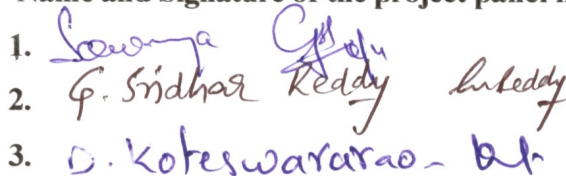 Name and Signature of the project panel
1. Sowmya
2. G. Sridhar Reddy
3. D. Koteswararao -